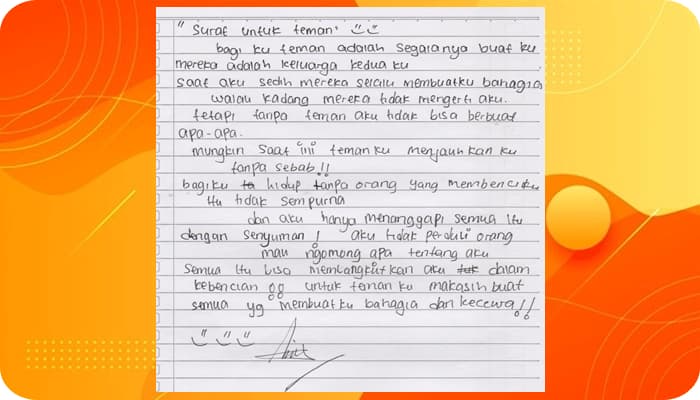 " Surat untuk teman"
bagi ku teman adalah segalanya buat ku
mereka adalah keluarga kedua ku
saat aku sedih mereka selalu membuatku bahagia
walau kadang mereka tidak mengerti aku.
tetapi tanpa teman aku tidak bisa berbuat
apa-apa.
mungkin saat ini teman ku menjauhkan ku
tanpa sebab!!
bagi ku hidup tanpa orang yang membenciku
itu tidak sempurna
dan aku hanya menanggapi semua itu
dengan senyuman! aku tidak perduli orang
mau ngomong apa tentang aku
semua itu bisa membangkitkan aku dalam
kebencian untuk teman ku makasih buat
semua yg membuatku bahagia dan kecewa!!